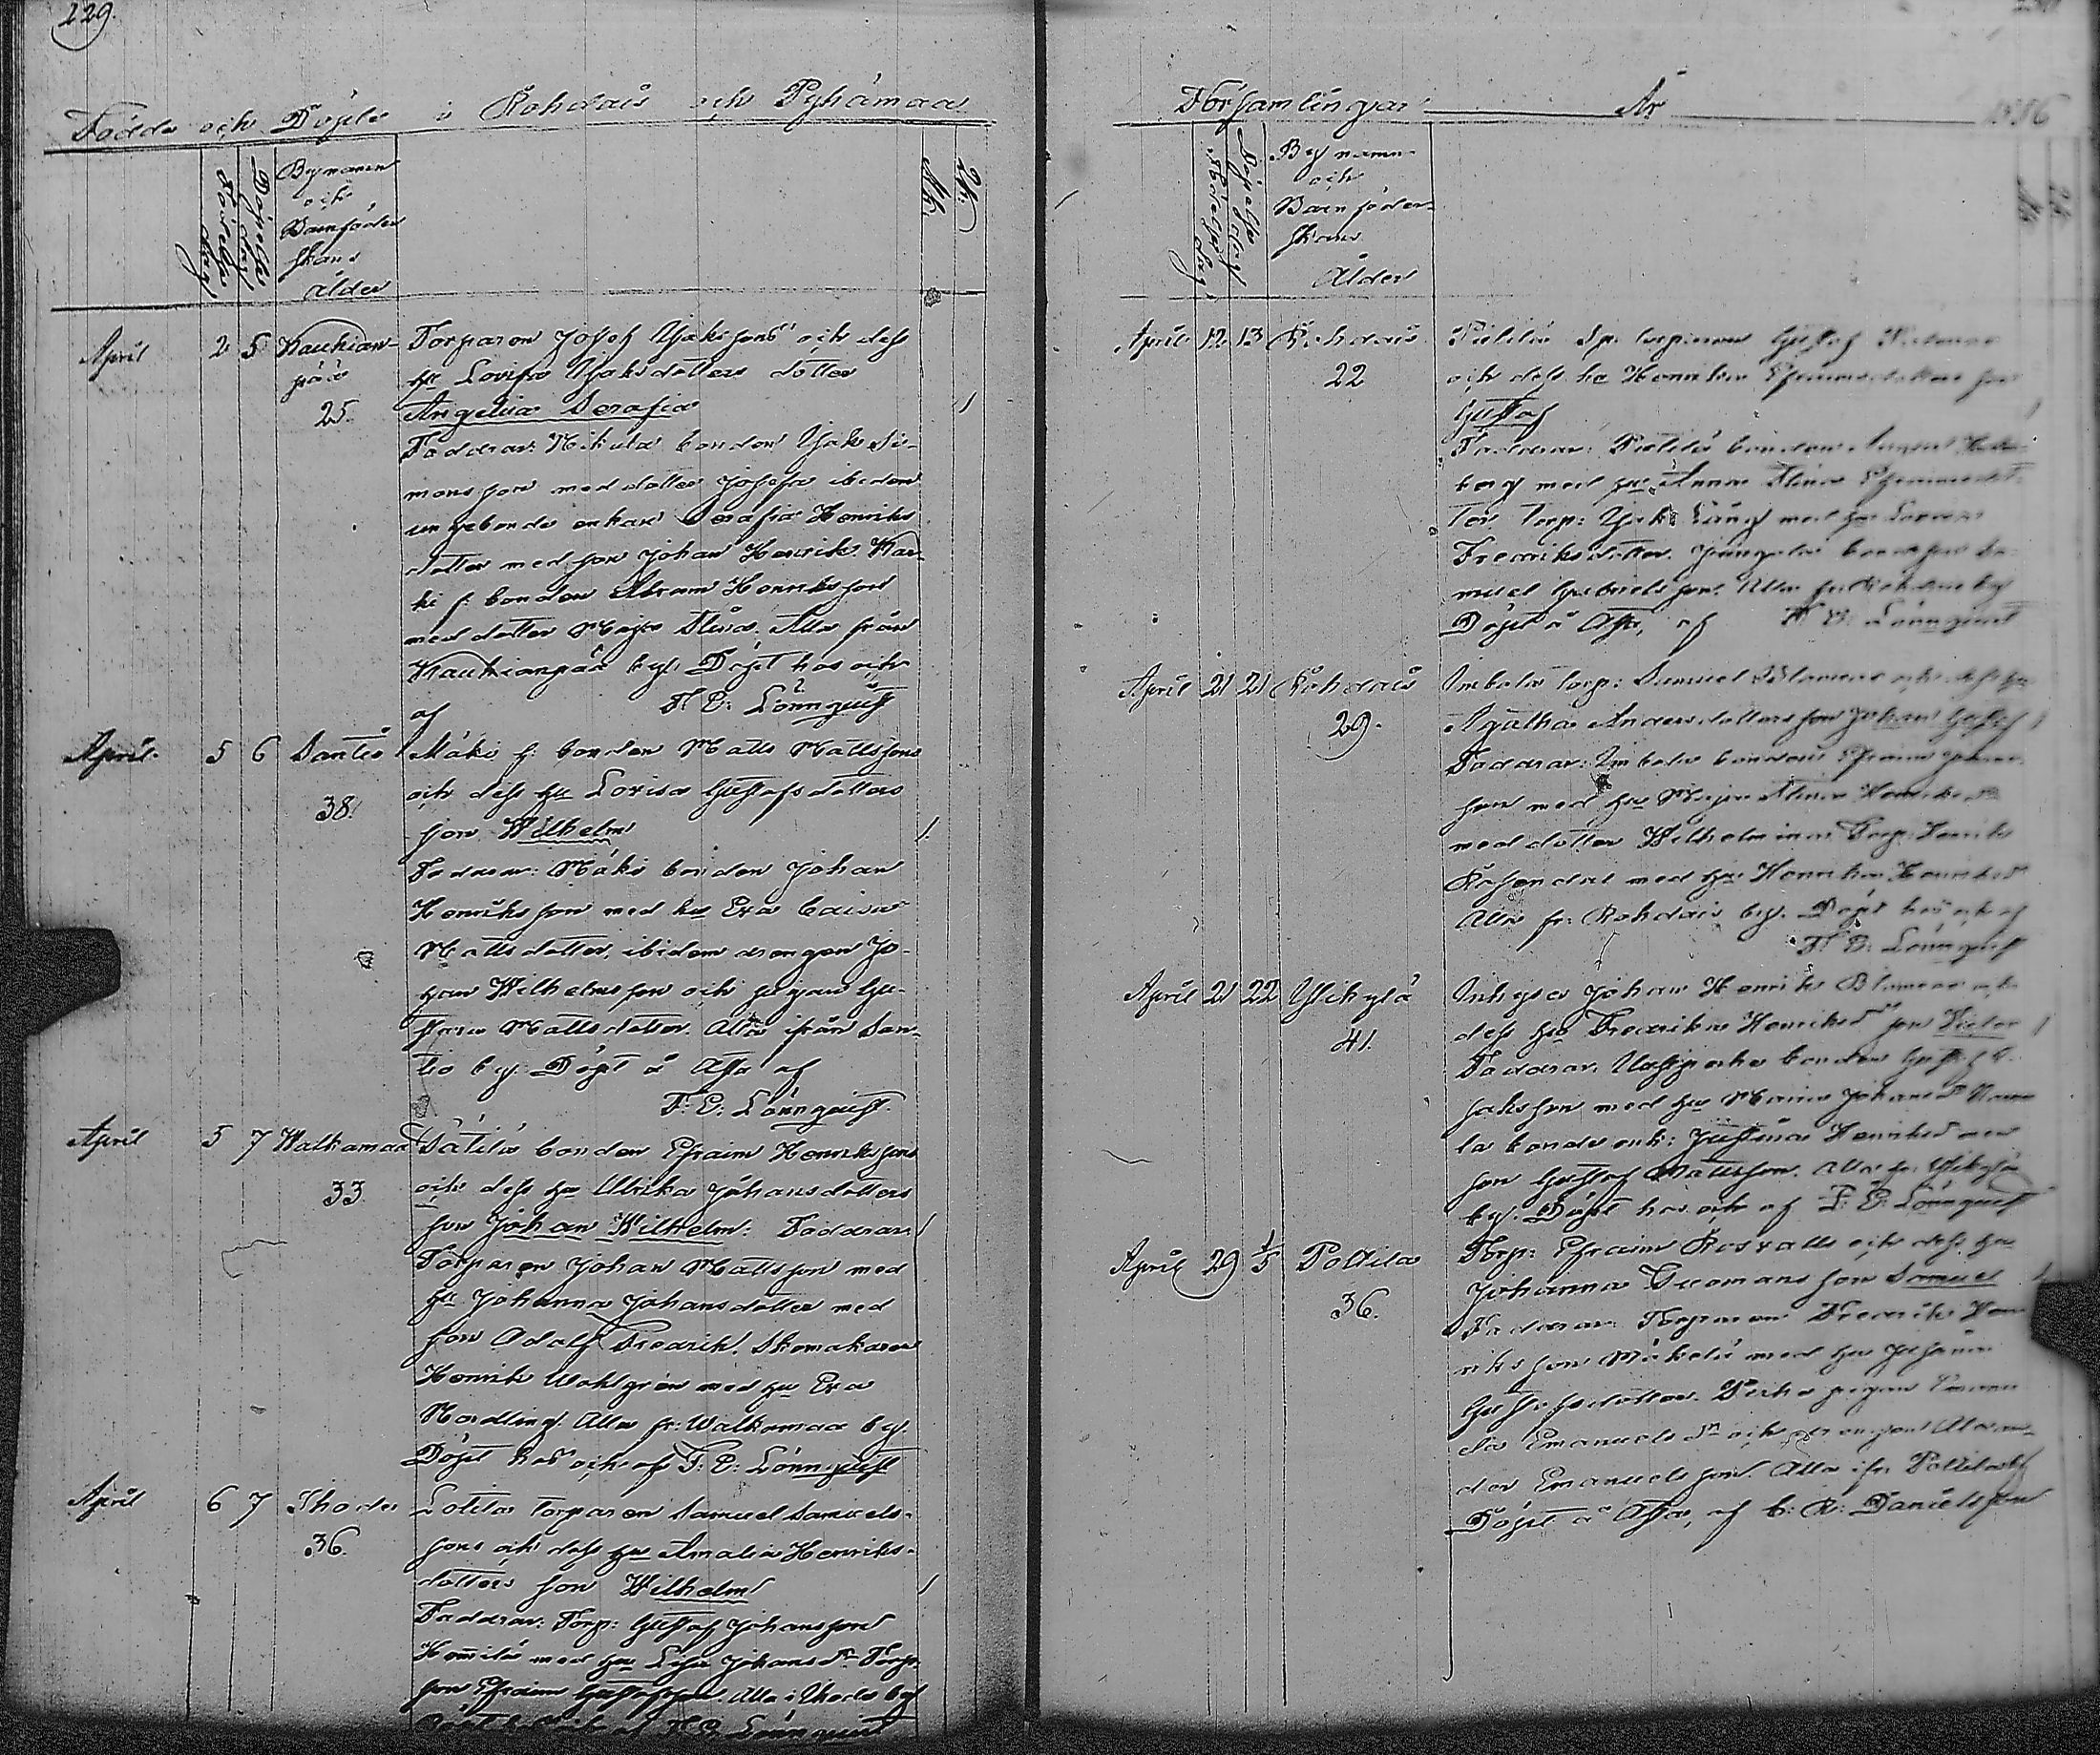 229.
Födde och Döpte i Rohdais och Pyhämaa
Födelse dag
Döpelse dag
Bynamn
och
Barnföder
skans
ålder
Mk.
Qk.
April 2 5 Kauhian-
pää
25.
Torparen Josef Isakssons och dess
hu Lovisa Isaksdotters dotter
Angelica Serafia 1
Faddrar: Mikola bonden Isak Si-
monsson med dotter Josefa ibidem
unge bonde enkan Serafia Henriks
dotter med son Johan Henrik. Kar-
ki f. bonden Abram Henriksson
med dotter Maja Stina. Alla från
Kauhianpää by. Döpt hos och
af F. E. Lönnquist
April. 5 6 Santio
38.
Mäki f. bonden Matts Mattssons
och dess hu Lovisa Gustafsdotters
son Wilhelm 1.
Faddrar: Mäki bonden Johan
Henriksson med hu Eva Caisa
Mattsdotter, ibidem drengen Jo-
han Wilhelmsson och pigan Gu-
stava Mattsdotter. Alla ifrån San-
tio by. Döpt å Afta af
F: E: Lönnquist.
April 5 7 Walkamaa
33
Sätilä bonden Efraim Henrikssons
och dess hu Ulrika Johansdotters
son Johan Wilhelm. Faddrar: 1
Torparen Johan Mattsson med
hu Johanna Johansdotter med
son Adolf Fredrik. Skomakaren
Henrik Wahlgren med hu Eva
Nordling. Alla fr: Walkamaa by.
Döpt hos och af F: E: Lönnquist
April 6 7 Ihode
36.
Lotila torparen Samuel Samuels-
sons och dess hu Amalia Henriks-
dotters son Wilhelm 1
Faddrar: Torp: Gustaf Johansson
med hu Lisa Johans Dr Torp.
son Efraim Gustafsson. Alla i Ihode by
Döpt af F. E. Lönnquist
Församlingar År 1886
Födelse dag
Döpelse dag
Bynamn
och
Barnföder-
skans
Ålder
April 12 13 Rohdais
22
torparen Gustaf
och dess hu Henrika Efraimsdotters son
Gustaf 1
Faddrar: bonden
berg med hu Anna Stina Efraimsdot-
ter. Torp: Isak Läng med hu Lovisa
Fredriksdotter. bondeson Sa-
muel Gabrielsson. Alla fr: Rohdais by
Döpt å Afta, af F. E. Lönnquist
April 21 21 Rohdais
29.
Torp: Samuel Blomroos och dess hu
Agatha Andersdotters son Johan Gustaf 1
Faddrar: bonden Efraim
son med hu Maja Stina Henriksd
med dotter Wilhelmina. Torp: Henrik
Rosendal med hu Henrika Henriksd
Alla fr: Rohdais by. Döpt hos och af
F. E. Lönnquist
April 21 22 Ylikylä
41.
Inhyses Johan Henrik Blomroos och
dess hu Fredrika Henriksd son Victor 1
Faddrar: bonden Gustaf I-
saksson med hu Maria Johansd
la bonde enk: Justina Henriksd med
son Gustaf Mattsson. Alla fr. Ylikylä
by. Döpt hos och af F: E: Lönnquist
April 29 1/5 Poltila
36.
Torp: Efraim Rosvalls och dess hu
Johanna Tuomans son Samuel 1
Faddrar: Torparen Fredrik Hen-
riksson Mäkelä med hu Josefina
Gustafsdotter. pigan Emanu-
Emanuels Dr och drengen Alexan-
der Emanuelsson. Alla ifr. Poltila by
Döpt å Afta, af C: R: Danielsson